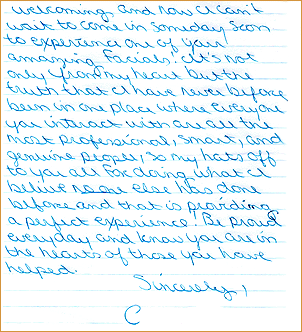 welcoming and now I can't
wait to come in someday soon
to experience one of your
amazing facials! It's not
only from my heart but the
truth that I have never before
been in one place where everyone
you interact with are all the
most professional, smart, and
genuine people, so my hats off
to you all for doing what I
believe no one else has done
before and that is providing
a perfect experience! Be proud
everyday and know you are in
the hearts of those you have
helped.
Sincerely,
C